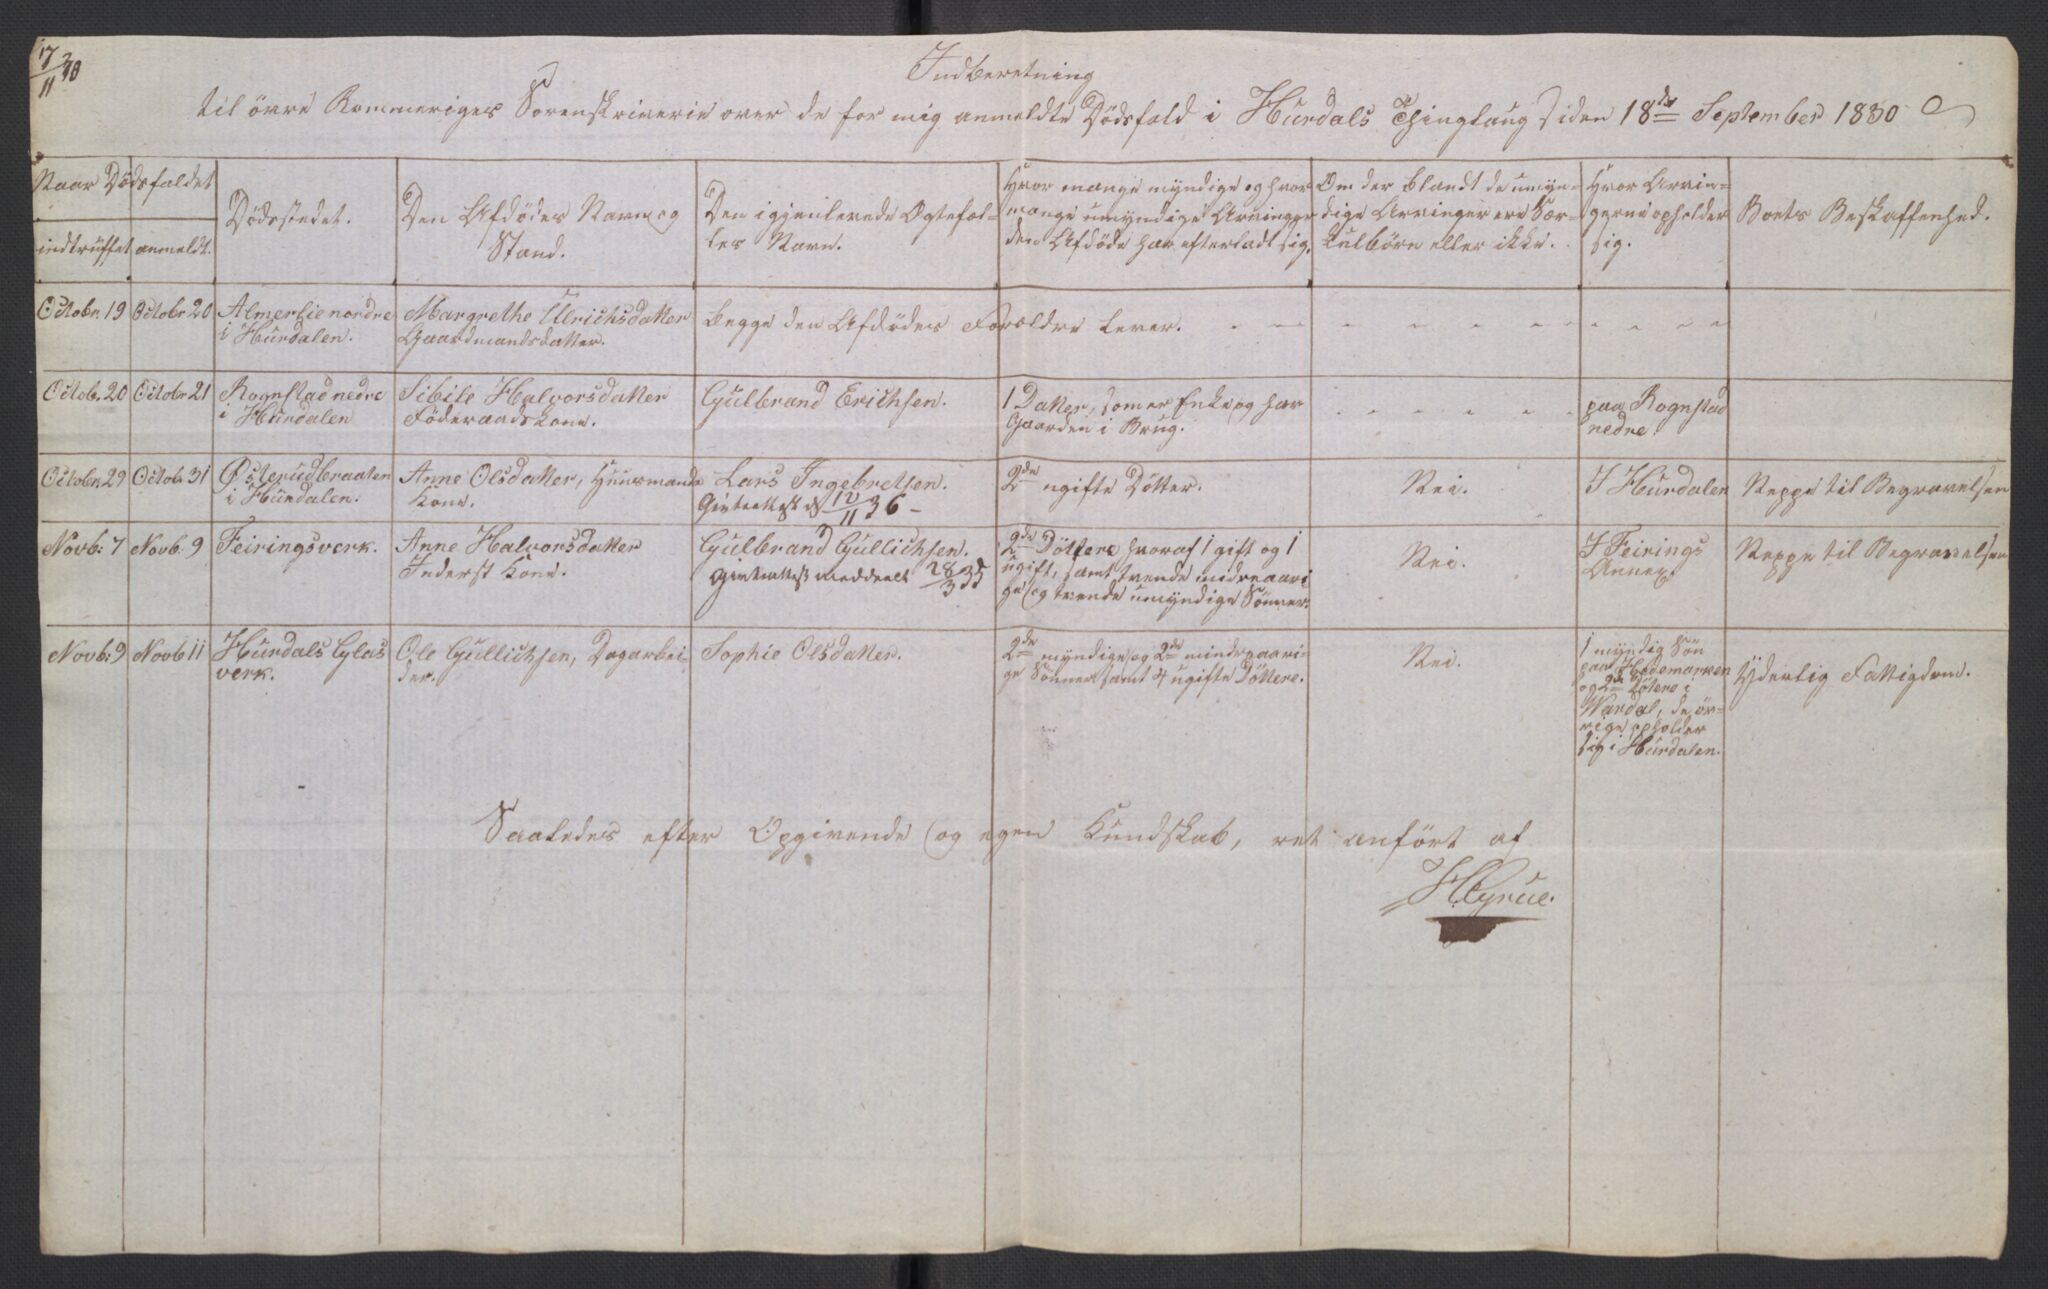 17/11 30
Indberetning
til övre Rommeriges Sorenskriverie over de for mig anmeldte Dödsfald i Hurdals Thinglaug siden 18de September 1830
Naar Dödsfaldet
indtruffet
anmeldt.
Dödsstedet.
Den Afdödes Navn og
Stand.
Den igjenlevende Ægtefæl-
les Navn.
Hvor mange myndige og hvor
mange umyndige Arvinger
den Afdöde har efterladt sig.
Om der blandt de umyn=
dige Arvinger ere Sær-
kulbörn eller ikke.
Hvor Arvin=
gerne opholder
sig.
Boets Beskaffenhed.
Octobr 19
Octobr 20
Almerlie nordre
i Hurdalen.
Margrethe Ulrichsdatter
Gaardmandsdatter.
begge den Afdödes Forældre lever.
Octobr 20
Octobr 21
Rognstad nedre
i Hurdalen
Sibile Halvorsdatter
Föderaadskone.
Gulbrand Erichsen.
1 Datter, som er Enke og har
Gaarden i Brug.
paa Rognstad
nedre.
Octobr 29
Octob. 31
Østerudbraaten
i Hurdalen.
Anne Olsdatter, Huusmands
Kone.
Lars Ingebretsen.
12/11 36 -
2de ugifte Dötter.
Nei.
I Hurdalen
Neppe til Begravelsen
Novb: 7
Novb. 9
Feiringsverk.
Anne Halvorsdatter
Inderst Kone.
Gulbrand Gullichsen.
meddeelt 28/3 35
2de Döttere hvoraf 1 gift og 1
ugift, samt trende midreaari
ge og trende umyndige Sönner.
Nei.
I Feirings
Annex.
Neppe til Begravelsen
Novb: 9
Novb 11
Hurdals Glas
verk.
Ole Gullichsen, Dagarbei-
der.
Sophie Olsdatter.
2de myndige og 2de mindreaari-
ge Sönner samt 4 ugifte Döttere.
Nei.
1 myndig Sön
paa Hedemarken
og 2de Döttere i
Wardal, de öv-
rige opholder
sig i Hurdalen.
Yderlig Fattigdom.
Saaledes efter Opgivende og egen Kundskab, ret anfört af
HGyrue.